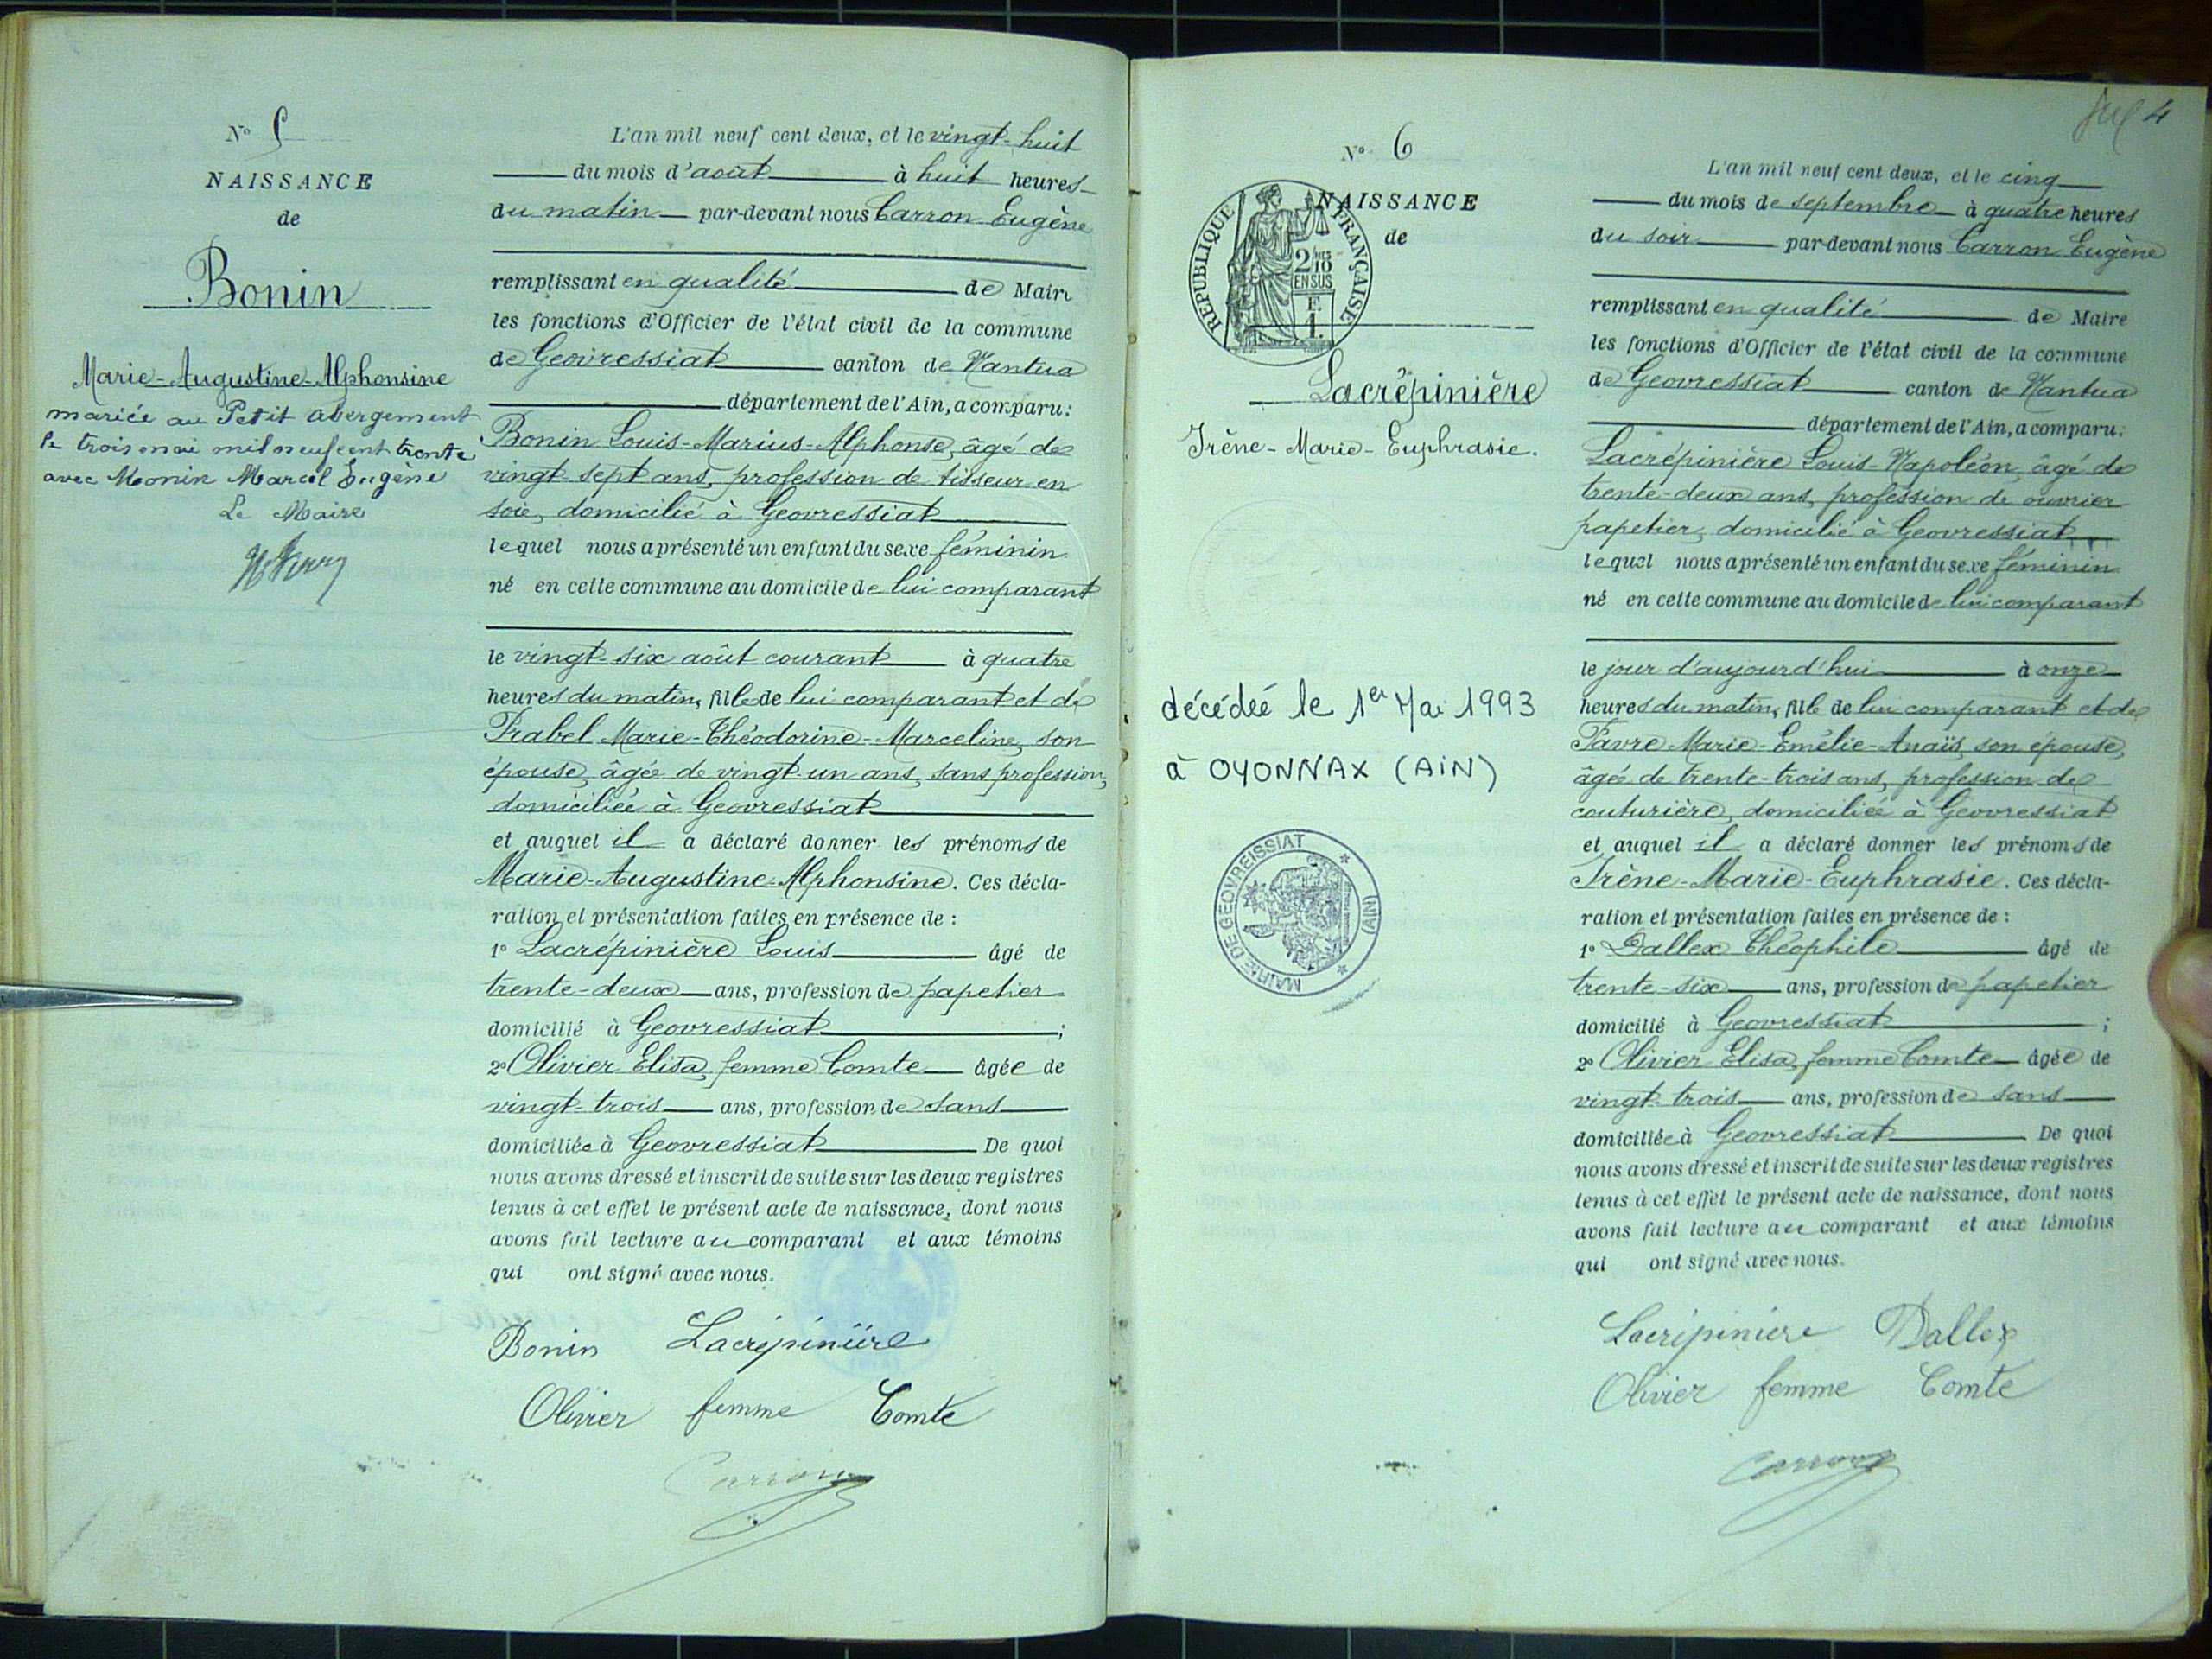 N° 5
NAISSANCE
de
Bonin
Marie-Augustine-Alphonsine
mariée au Petit Abergement
le trois mai mil neuf cent trente
avec Monin Marcel Eugène
Le Maire
L'an mil neuf cent deux, et le vingt-huit
du mois d'août à huit heures
du matin par-devant nous Carron Eugène
remplissant en qualité de Maire
les fonctions d'Officier de l'état civil de la commune
de Geovressiat canton de Nantua
département de l'Ain, a comparu:
Bonin Louis-Marius-Alphonse, âgé de
vingt-sept ans, profession de tisseur en
soie, domicilié à Geovressiat
lequel nous a présenté un enfant du sexe féminin
né en cette commune au domicile de lui comparant
le vingt-six août courant à quatre
heures du matin, fille de lui comparant et de
Prabel Marie-Théodorine-Marceline, son
épouse, âgée de vingt-un ans, sans profession,
domiciliée à Geovressiat
et auquel il a déclaré donner les prénoms de
Marie-Augustine-Alphonsine. Ces décla-
ration et présentation faites en présence de :
1° Lacrépinière Louis âgé de
trente-deux ans, profession de papetier
domicilié à Geovressiat ;
2° Olivier Elisa, femme Comte âgée de
vingt-trois ans, profession de sans
domiciliée à Geovressiat De quoi
nous avons dressé et inscrit de suite sur les deux registres
tenus à cet effet le présent acte de naissance, dont nous
avons fait lecture au comparant et aux témoins
qui ont signé avec nous.
Bonin Lacrépinière
Olivier femme Comte
Carron
4
N° 6
NAISSANCE
de
REPUBLIQUE FRANÇAISE
2/10
EN SUS
E
1.
Lacrépinière
Irène-Marie-Euphrasie.
décédée le 1er Mai 1993
à OYONNAX (AIN)
MAIRIE DE GÉOVREISSIAT * (AIN) *
L'an mil neuf cent deux, et le cinq
du mois de septembre à quatre heures
du soir par-devant nous Carron Eugène
remplissant en qualité de Maire
les fonctions d'Officier de l'état civil de la commune
de Geovressiat canton de Nantua
département de l'Ain, a comparu:
Lacrépinière Louis-Napoléon, âgé de
trente-deux ans, profession de ouvrier
papetier, domicilié à Geovressiat
lequel nous a présenté un enfant du sexe féminin
né en cette commune au domicile de lui comparant
le jour d'aujourd'hui à onze
heures du matin, fille de lui comparant et de
Favre Marie-Emélie-Anaïs, son épouse,
âgée de trente-trois ans, profession de
couturière, domiciliée à Geovressiat
et auquel il a déclaré donner les prénoms de
Irène-Marie-Euphrasie. Ces décla-
ration et présentation faites en présence de :
1° Dallex Théophile âgé de
trente-six ans, profession de papetier
domicilié à Geovressiat ;
2° Olivier Elisa, femme Comte âgée de
vingt-trois ans, profession de sans
domiciliée à Geovressiat De quoi
nous avons dressé et inscrit de suite sur les deux registres
tenus à cet effet le présent acte de naissance, dont nous
avons fait lecture au comparant et aux témoins
qui ont signé avec nous.
Lacrépinière Dallex
Olivier femme Comte
Carron